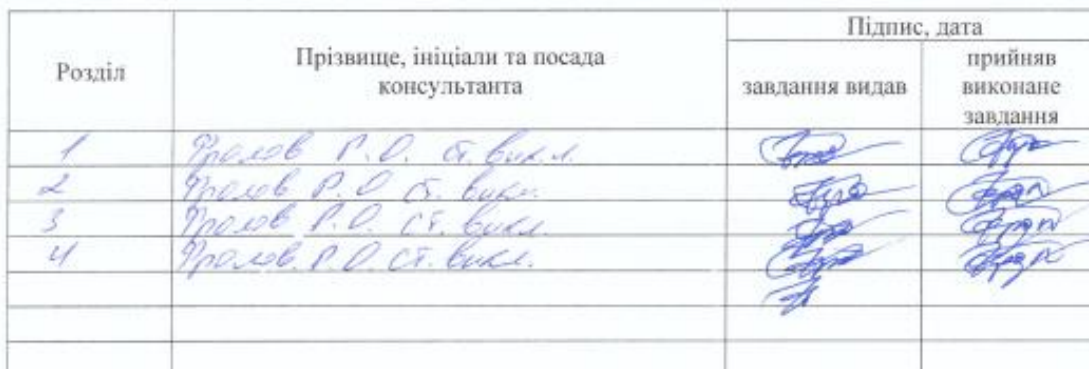 Розділ Прізвище, ініціали та посада консультанта Підпис, дата
завдання видав прийняв виконане завдання
1 Фролов Р.О. ст. викл.
2 Фролов Р.О ст. викл.
3 Фролов Р.О. ст. викл.
4 Фролов. Р.О. ст. викл.